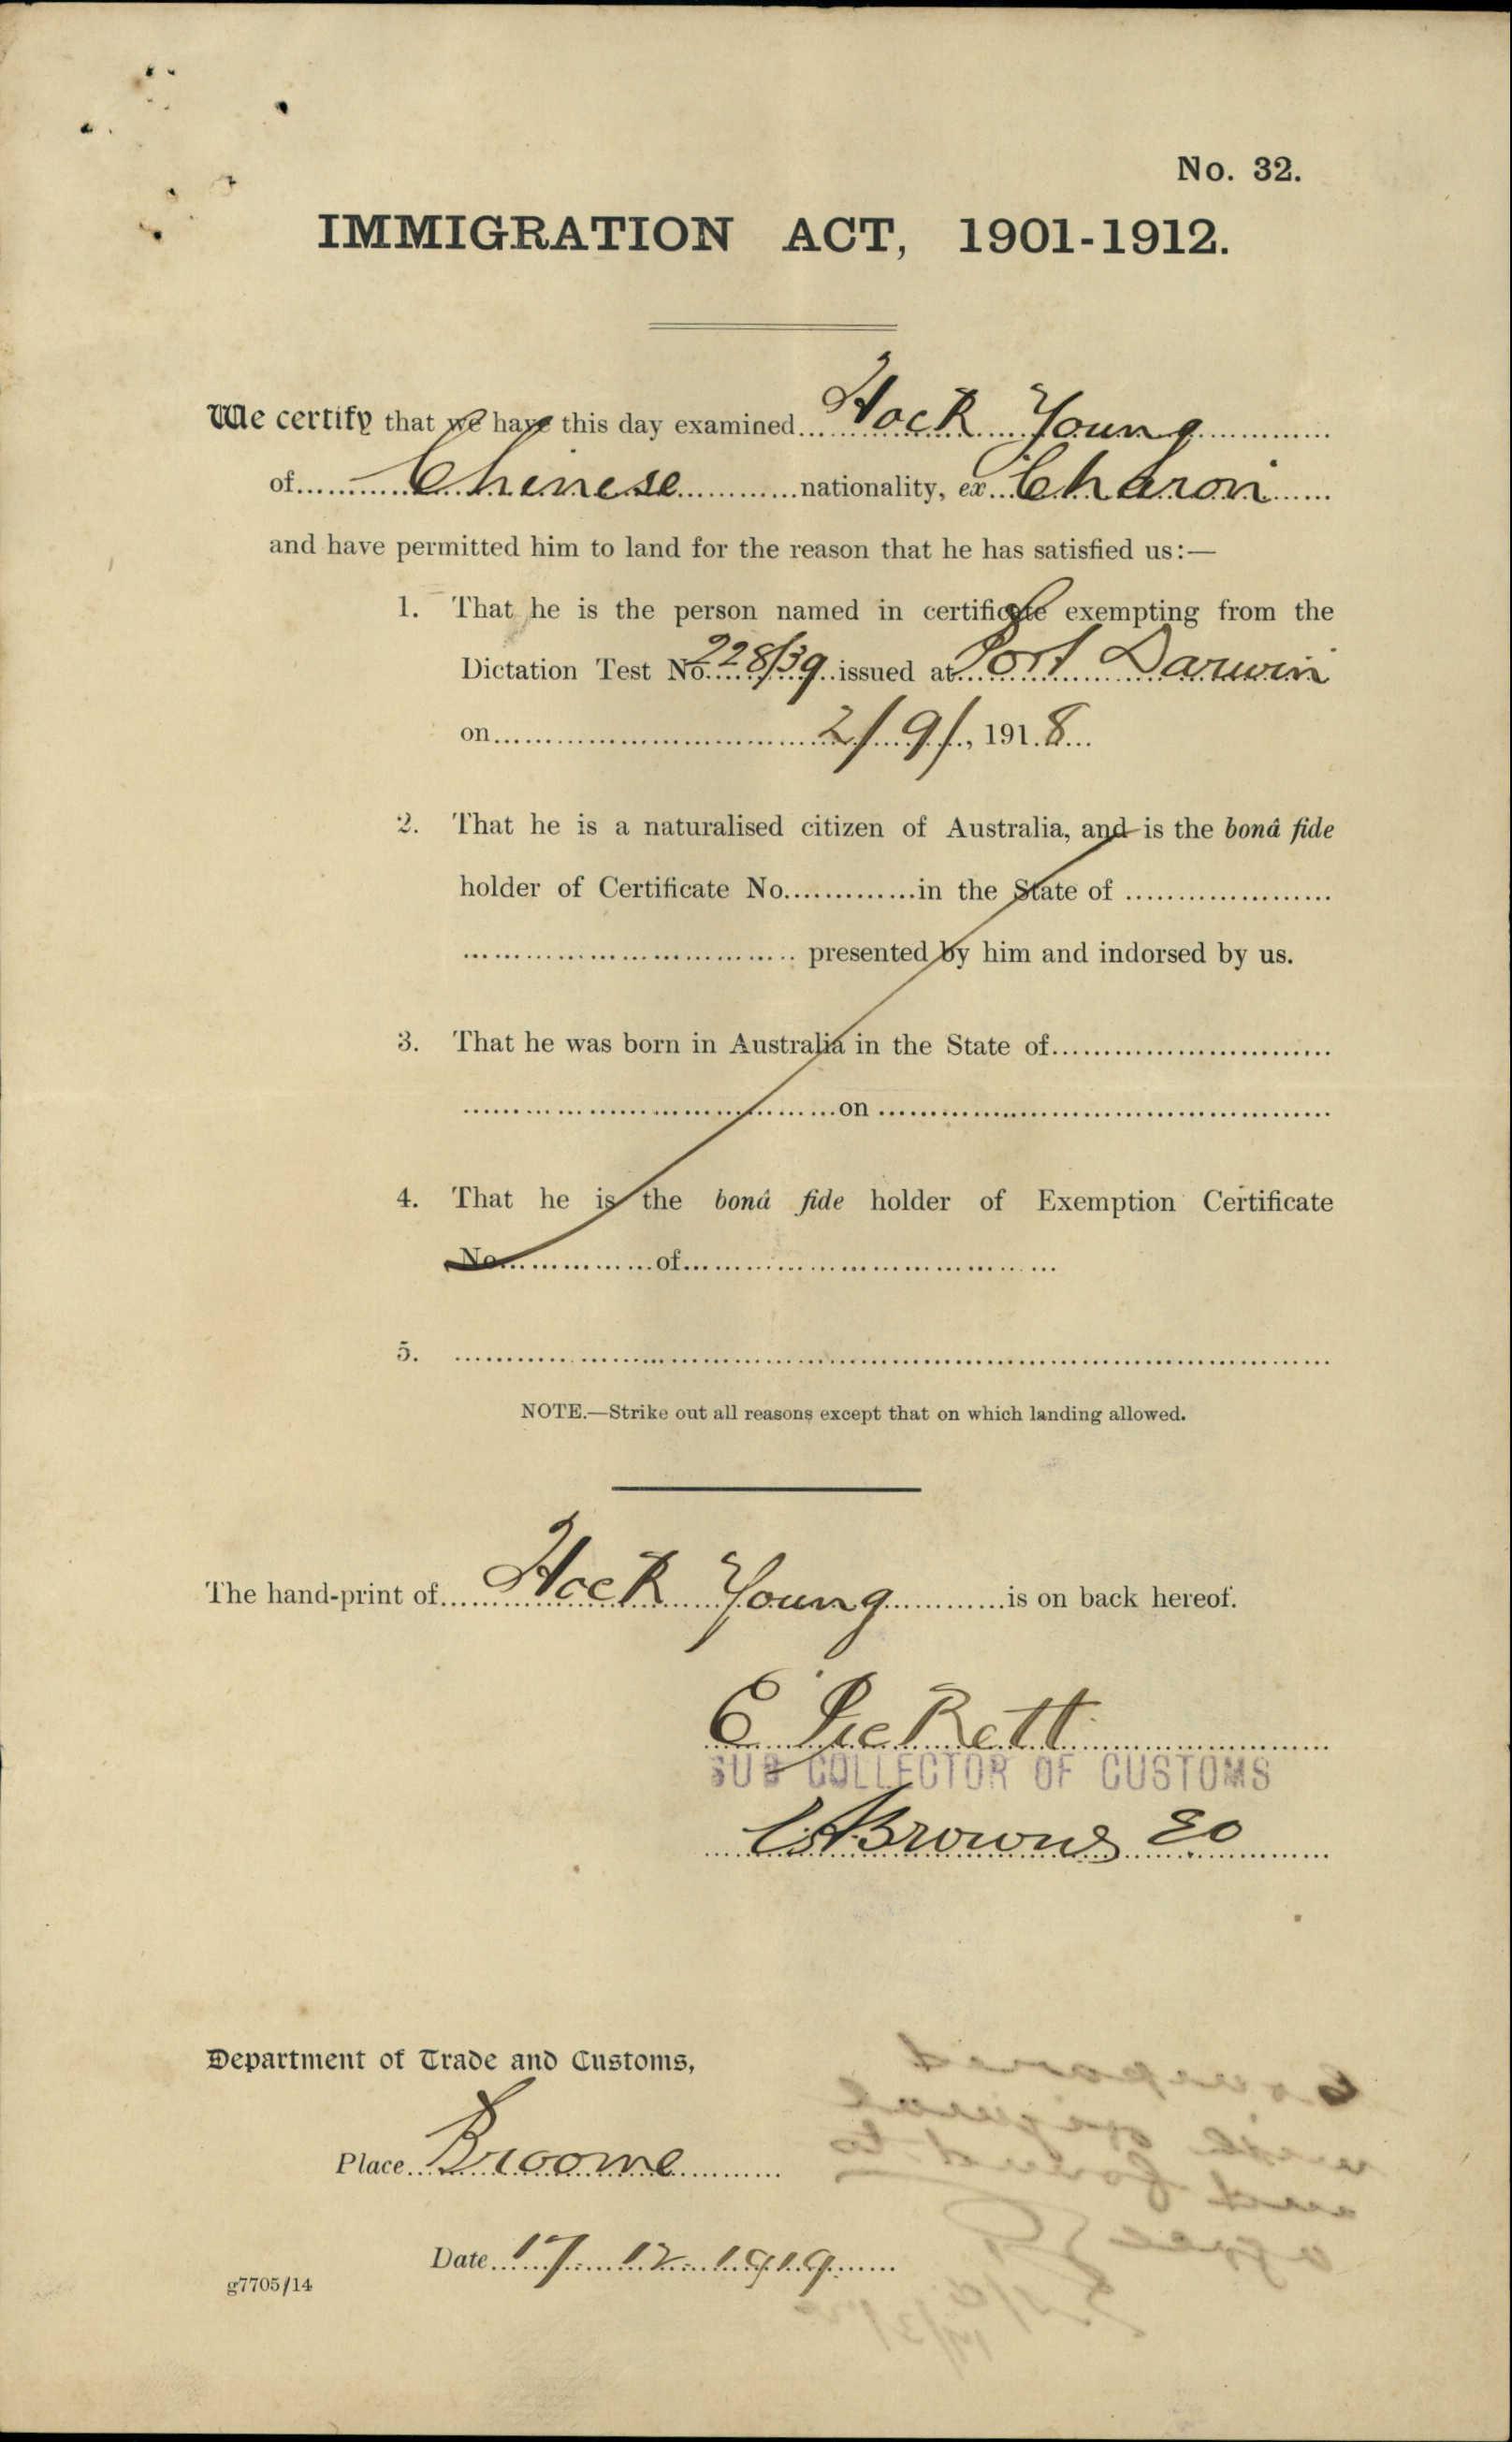 No. 32.
IMMIGRATION ACT, 1901-1912.
We certify that we have this day examined Hock Young
of Chinese nationality, ex Charon
and have permitted him to land for the reason that he has satisfied us:—
1. That he is the person named in certificate exempting from the
Dictation Test No. 228/39 issued at Port Darwin
on 2/9/, 1918
2. That he is a naturalised citizen of Australia, and is the bonâ fide
holder of Certificate No. in the State of
presented by him and indorsed by us.
3. That he was born in Australia in the State of
on
4. That he is the bonâ fide holder of Exemption Certificate
No. of
5.
NOTE.—Strike out all reasons except that on which landing allowed.
The hand-print of Hock Young is on back hereof.
C Pickett
SUB COLLECTOR OF CUSTOMS
Browne EO
Department of Trade and Customs,
Place Broome
Date 17. 12. 1919
g7705/14